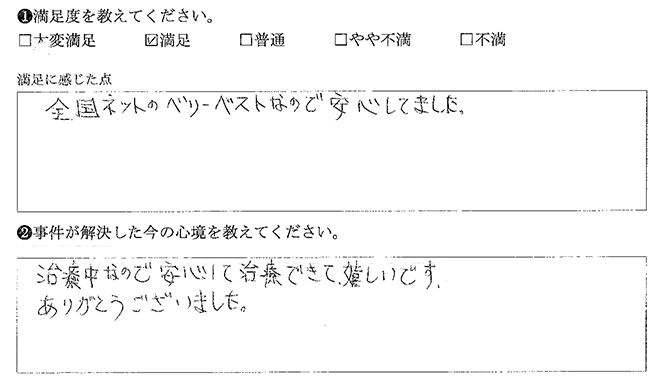 ❶満足度を教えてください。
□大変満足 ☑満足 □普通 □やや不満 □不満
満足に感じた点
全国ネットのベリーベストなので安心してました。
❷事件が解決した今の心境を教えてください。
治療中なので安心して治療できて、嬉しいです。
ありがとうございました。